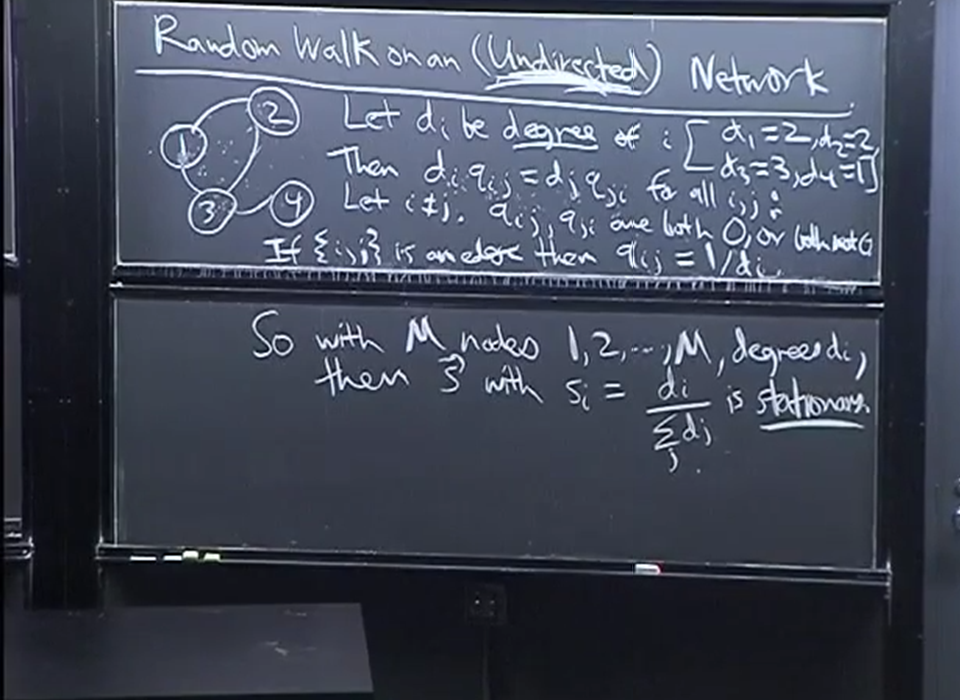 Random Walk on an (Undirected) Network
1 2 3 4
Let dᵢ be degree of i [d₁=2, d₂=2,
d₃=3, d₄=1]
Then dᵢ qᵢⱼ = dⱼ qⱼᵢ for all i,j:
Let i≠j. qᵢⱼ, qⱼᵢ are both 0, or both not 0
If {i,j} is an edge then qᵢⱼ = 1/dᵢ.
So with M nodes 1,2,...,M, degrees dᵢ,
then s⃗ with sᵢ = dᵢ / ∑ⱼ dⱼ is stationary.